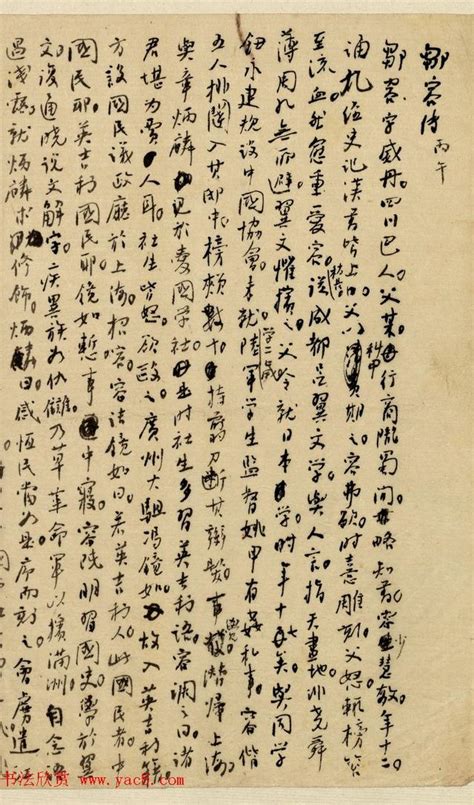 鄒容傳 丙午
鄒容字威丹。四川巴人。父某。行商隴蜀間。略知書。容少慧敏。年十二
誦九經史記漢書皆上口。父以科甲期之。容弗欲。時喜雕刻。父怒。輒榜笞
至流血。然愈重愛容。稍長從成都呂翼文學。與人言。指天畫地。非堯舜
薄周孔。無所避。翼文懼擯之。父令就日本學。時年十七矣。與同學
鈕永建規設中國協會。未就。學二歲陸軍學生監督姚甲有姦私事。容偕
五人排闥入其邸中。榜頰數十。持剪刀斷其辮髮。事覺潛歸上海。
與章炳麟見於愛國學社。是時社生多習英吉利語。容調之曰。諸
君堪為賈人耳。社生皆怒。欲毆之。廣州大駔馮鏡如。故入英吉利籍
方設國民議政廳於上海。招容。容詰鏡如曰。若英吉利人。此國民者。中
國民邪。英吉利國民邪。鏡如慚。事中寢。容既明習國史。學於翼
文。復通曉說文解字。疾異族如仇讎。乃草革命軍以擯滿洲。自念語
過淺露。就炳麟求修飾。炳麟曰。感恆民當如是。序而刻之。會虜遣江
书法欣赏 www.yac8.com